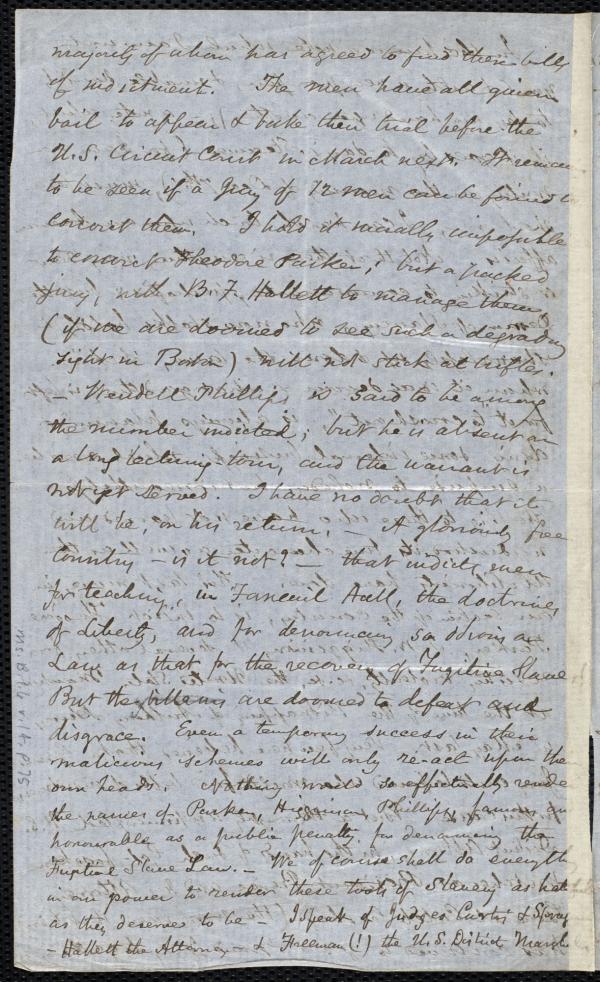 majority of whom has agreed to find these bills
of indictment. The men have all given
bail to appear & take their trial before the
U.S. Circuit Court in March next. It remains
to be seen if a Jury of 12 men can be found to
convict them. I hold it morally impossible
to convict Theodore Parker; but a packed
jury, with B. F. Hallett to manage them,
(if we are doomed to see such a degrading
sight in Boston) will not stick at trifles.
— Wendell Phillips is said to be among
the number indicted; but he is absent on
a long lecturing-tour, and the warrant is
not yet served. I have no doubt that it
will be, on his return. — A gloriously free
Country — is it not? — that indicts men
for teaching, in Faneuil Hall, the doctrines
of Liberty, and for denouncing so odious a
Law as that for the recovery of Fugitive Slaves
But the villains are doomed to defeat and
disgrace. Even a temporary success in their
malicious schemes will only re-act upon their
own heads. Nothing would so effectually render
the names of Parker, Higginson, Phillips, famous
honourable as a public penalty for denouncing the
Fugitive Slave Law. — We of course shall do everything
in our power to render these tools of Slavery as
as they deserve to be — I speak of Judges Curtis & Sprague
— Hallett the Attorney — & Freeman (!) the U.S. District Marshal
Ms. B.1.6 v.14, p.75